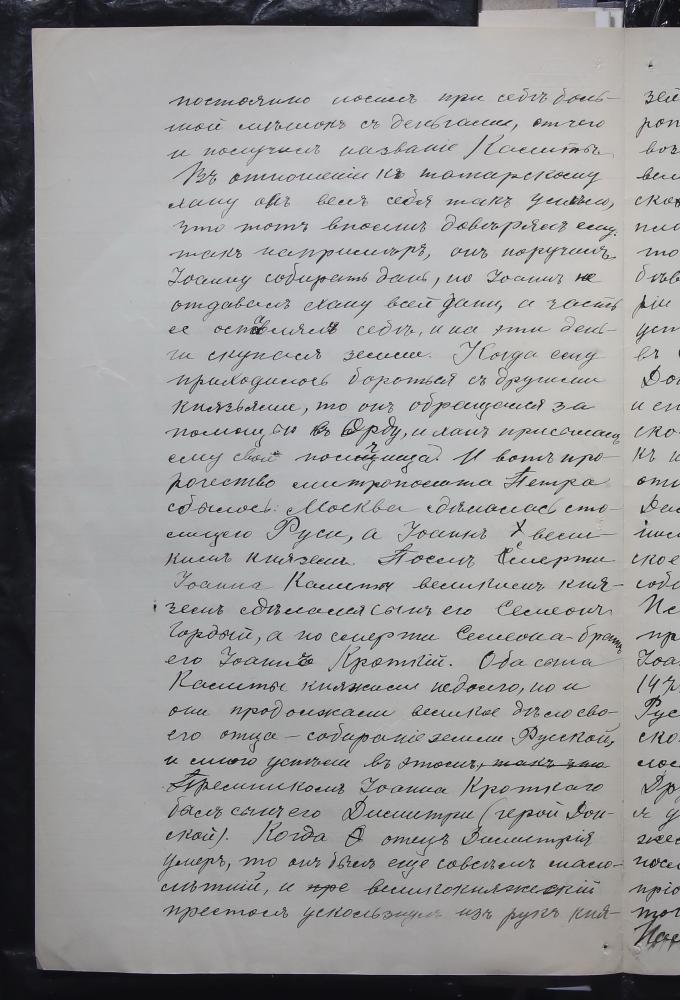 постоянно носилъ при себѣ боль-
шой мѣшокъ съ деньгами, отчего
и получилъ названіе Калиты.
Въ отношеніи къ татарскому
хану онъ велъ себя такъ умѣло,
что тотъ вполнѣ довѣрялъ ему.
такъ напримѣръ, онъ поручилъ
Іоанну собирать дань, но Іоаннъ не
отдавалъ хану всей дани, а часть
ее оставлялъ себѣ, и на эти день-
ги скупалъ земли. Когда ему
приходилось бороться съ другими
князьями, то онъ обращался за
помощью въ Орду, и ханъ присылалъ
ему свои полчища. И вотъ про-
рочество митрополита Петра
сбылось: Москва сдѣлалась сто-
лицею Руси, а Іоаннъ вели-
кимъ княземъ. Послѣ смерти
Іоанна Калиты великимъ кня-
земъ сдѣлался сынъ его Семеонъ
Гордый, а по смерти Семеона - братъ
его Іоаннъ Кроткій. Оба сына
Калиты княжили недолго, но и
они продолжали великое дѣло сво-
его отца - собираніе земли Русской,
и много успѣли въ этомъ, такъ что
Преемникомъ Іоанна Кроткаго
былъ сынъ его Димитри (герой Дон-
ской). Когда отецъ Димитрія
умеръ, то онъ былъ еще совсѣмъ мало-
лѣтній, и пре великокняжескій
престолъ ускользнулъ изъ рукъ кня-
зей